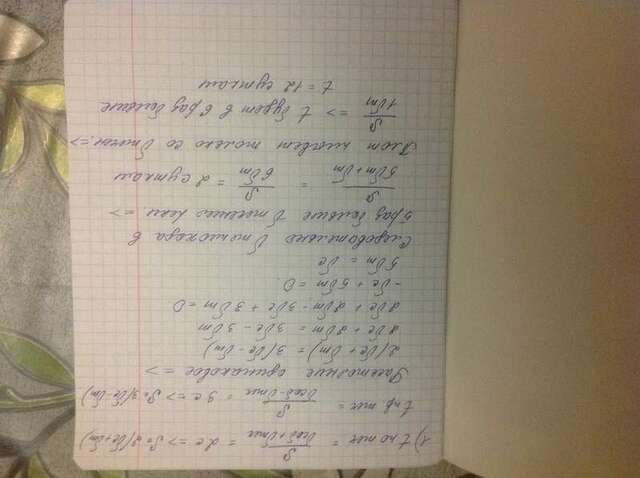 1) t по теч = S / (Vсоб + Vтеч) = 2 с => S = 2(Vс + Vт)
t пр. теч = S / (Vсоб - Vтеч) = 3 с => S = 3(Vс - Vт)
Расстояние одинаковое =>
2(Vс + Vт) = 3(Vс - Vт)
2Vс + 2Vт = 3Vс - 3Vт
2Vс + 2Vт - 3Vс + 3Vт = 0
-Vс + 5Vт = 0
5Vт = Vс
Следовательно V теплохода в
5 раз больше V течения реки. =>
S / (5Vт + Vт) = S / 6Vт = 2 суткам
Плот плывет только со V течен. =>
S / 1Vт => t будет в 6 раз больше
t = 12 суткам